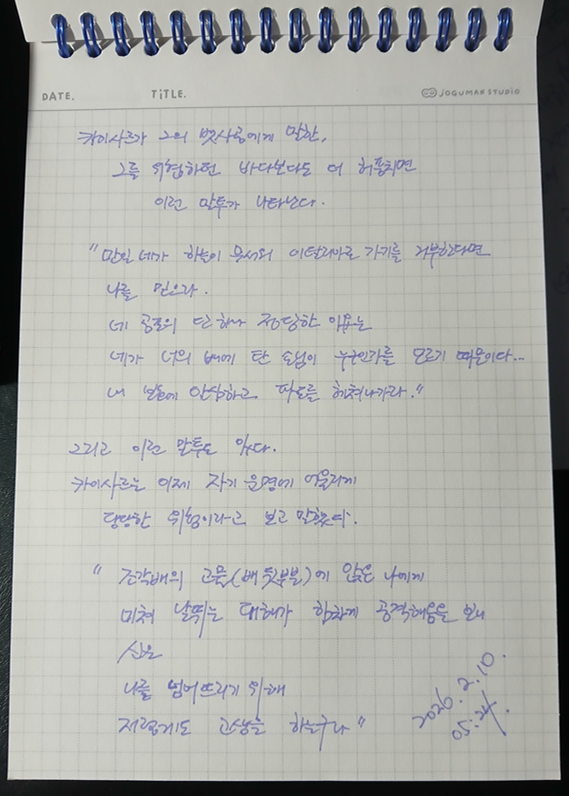 DATE.
TiTLE.
JOGUMAN STUDIO
카이사르가 그의 뱃사공에게 말한,
그를 위협하던 바다보다도 더 허풍치면
이런 말투가 나타난다.
"만일 네가 하늘이 무서워 이탈리아로 가기를 거부한다면
나를 믿으라.
네 공포의 단 하나 정당한 이유는
네가 너의 배에 탄 손님이 누구인가를 모르기 때문이다...
내 보호에 안심하고 파도를 헤쳐나가라."
그리고 이런 말투도 있다.
카이사르는 이제 자기 운명에 어울리게
당당한 위험이라고 보고 말했다.
"조각배의 고물(배 뒷부분)에 앉은 나에게
미쳐 날뛰는 대해가 힘차게 공격해옴을 보니
신은
나를 넘어뜨리기 위해
저렇게도 고생을 하는구나"
2026.2.10.
05:24.